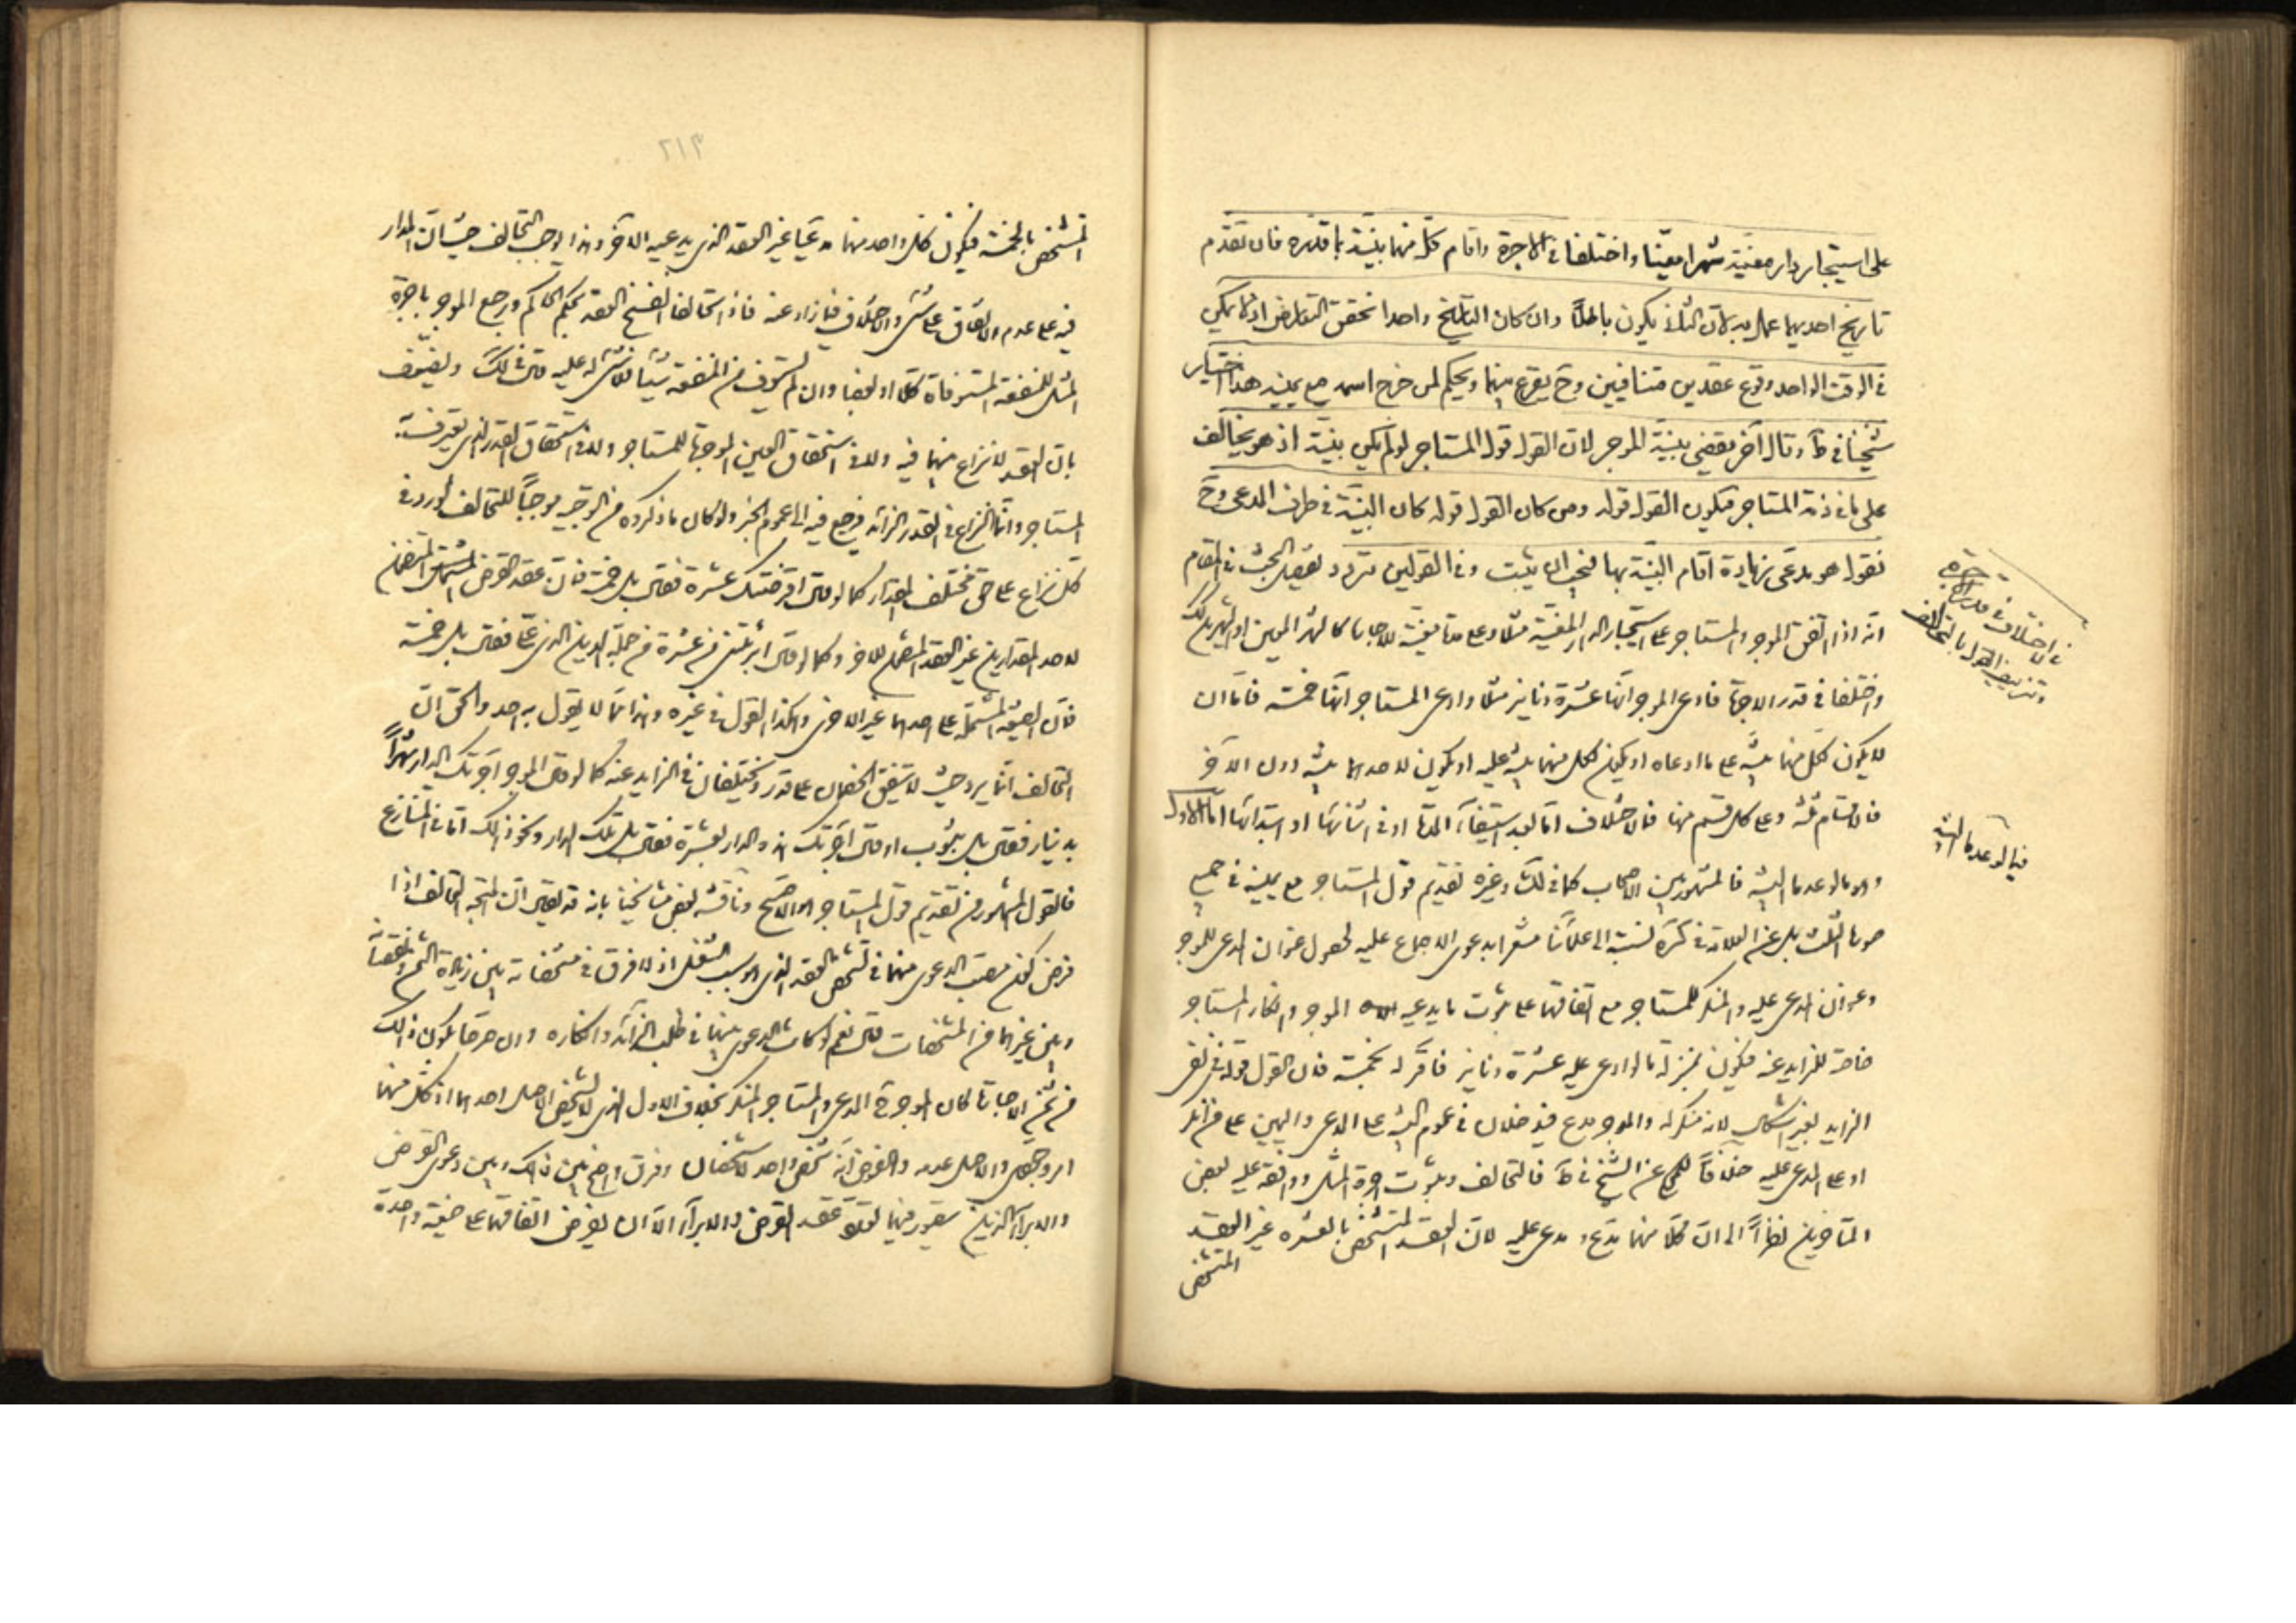 على استيجار دار معينة شهرا معينا واختلفا في الاجرة واقام كل منهما بينة بما قدره فان تقدم
تاريخ احديهما عمل به لان الثاني يكون باطلا وان كان التاريخ واحدا تحقق التعارض اذ لا يمكن
في الوقت الواحد وقوع عقدين متنافيين وح يقرع بينهما ويحكم لمن خرج اسمه مع يمينه هذا اختيار
شيخنا في ط وقال آخر يقضى ببينة الموجر لان القول قول المستاجر لو لم يكن بينة اذ هو يخالف
على ما في ذمة المستاجر فيكون القول قوله ومن كان القول قوله كان البينة في طرف المدعى وح
نقول هو مدعى زيادة اقام البينة بها فيجب ان يثبت وفي القولين تردد تفصيل البحث في المقام
انه اذا اتفق الموجر والمستاجر على استيجار الدار المعينة مثلا وعلى مدة معينة للاجارة كالشهر المعين او الشهرين
واختلفا في قدر الاجرة فادعى الموجر انها عشرة دنانير مثلا وادعى المستاجر انها خمسة فاما ان
لا يكون لكل منهما بينة على ما ادعاه او يكون لكل منهما بينة عليه او يكون لاحدهما بينة دون الآخر
فالاقسام ثلثة وعلى كل قسم منها فالاختلاف اما بعد استيفاء المدة او في اثنائها او ابتدائها اما الاول
وهو ما لو عدما البينة فالمشهور بين الاصحاب كما في لك وغيره تقديم قول المستاجر مع يمينه في جميع
صورها الثلث بل عن العلامة في كره نسبته الى علمائنا مشعرا بدعوى الاجماع عليه لحصول عنوان المدعى للموجر
وعنوان المدعى عليه والمنكر للمستاجر مع اتفاقهما على ثبوت ما يدعيه الموجر وانكار المستاجر
خاصة للزايد عنه فيكون بمنزلة ما لو ادعى عليه عشرة دنانير فاقر له بخمسة فان القول قوله في نفى
الزايد بغير اشكال لانه منكر له والموجر مدع فيدخلان في عموم البينة على المدعى واليمين على من انكر
او على المدعى عليه خلافا للمحكى عن الشيخ في ط فالتحالف وثبوت اجرة المثل ووافقه عليه بعض
المتاخرين نظرا الى ان كلا منهما مدع ومدعى عليه لان العقد المتشخص بالعشرة غير العقد
المتشخص
في الاختلاف في قدر الاجرة
وتزييف القول بالتحالف
فيما لو عدما البينة
٢١٣
المتشخص بالخمسة فيكون كل واحد منهما مدعيا غير العقد الذي يدعيه الآخر وهذا يوجب التحالف حيث ان المدار
فيه على عدم الاتفاق على شىء والاختلاف فيما زاد عنه فاذا تحالفا انفسخ العقد بحكم الحاكم ورجع الموجر باجرة
المثل للمنفعة المستوفاة كلا او بعضا وان لم يستوف من المنفعة شيئا فلا شىء له عليه قال في لك ويضعف
بان العقد لا نزاع بينهما فيه ولا في استحقاق العين الموجرة للمستاجر ولا في استحقاق القدر الذي يعترف به
المستاجر وانما النزاع في القدر الزائد فيرجع فيه الى عموم الخبر ولو كان ما ذكروه من التوجيه موجبا للتحالف لورد في
كل نزاع على حق مختلف المقدار كما لو قال اقرضتك عشرة فقال بل خمسة فان عقد القرض المشتمل المتضمن
لاحد المقدارين غير العقد المتضمن للآخر وكما لو قال ابرأتنى من عشرة من جملة الدين الذي على فقال بل خمسة
فان الصيغة المشتملة على احدهما غير الاخرى وهكذا القول في غيره وهذا مما لا يقول به احد والحق ان
التحالف انما يرد حيث لا يتفق الخصمان على قدر ويختلفان في الزايد عنه كما لو قال الموجر آجرتك الدار شهرا
بدينار فقال بل بثوب او قال آجرتك هذه الدار بعشرة فقال بل تلك الدار ونحو ذلك اما في المتنازع
فالقول المشهور من تقديم قول المستاجر هو الاصح وناقشه بعض مشايخنا بانه قد يقال ان المتجه التحالف اذا
فرض كون مصب الدعوى منهما في تشخص العقد الذي هو سبب الشغل اذ لا فرق في مشخصاته بين زيادة الثمن ونقصانه
وبين غيرهما من المشخصات قال نعم لو كانت الدعوى بينهما في طلب الزائد وانكاره وان صرحا بكون ذلك
من ثمن الاجارة كان الموجر ح المدعى والمستاجر المنكر بخلاف الاول الذي لا يشخص الاصل احدهما اذ كل منهما
امر وجودى والاصل عدمه والفرض انه شخص واحد لا شخصان وفرق واضح بين ذلك وبين دعوى القرض
والابراء الذين يتصور فيهما تعلق عقد القرض والابراء الا ان يفرض اتفاقهما على صيغة واحدة